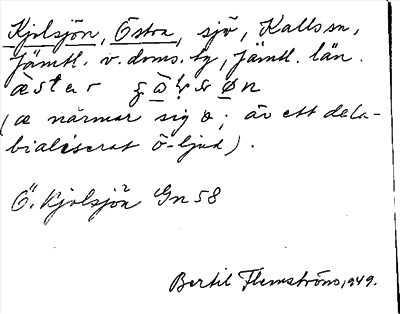 Kjolsjön, Östra, sjö, Kalls sn,
Jämtl. v. doms. tg, Jämtl. län.
(æ närmar sig ö; är ett dela-
bialiserat ö-ljud).
Ö. Kjolsjön Gn 58
Bertil Flemström, 1949.